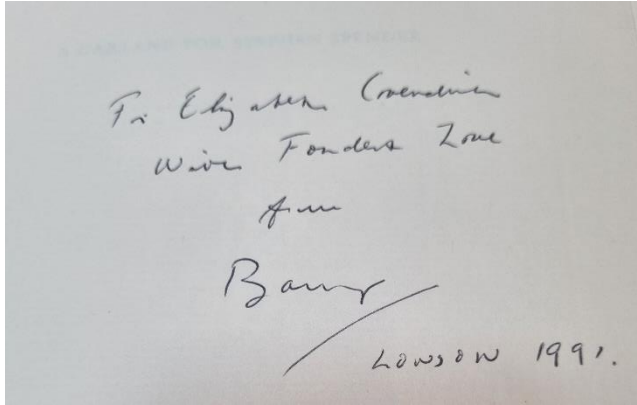 A GARLAND FOR STEPHEN SPENDER
To Elizabeth Cavendish
With Fondest Love
from
Barry
London 1991.